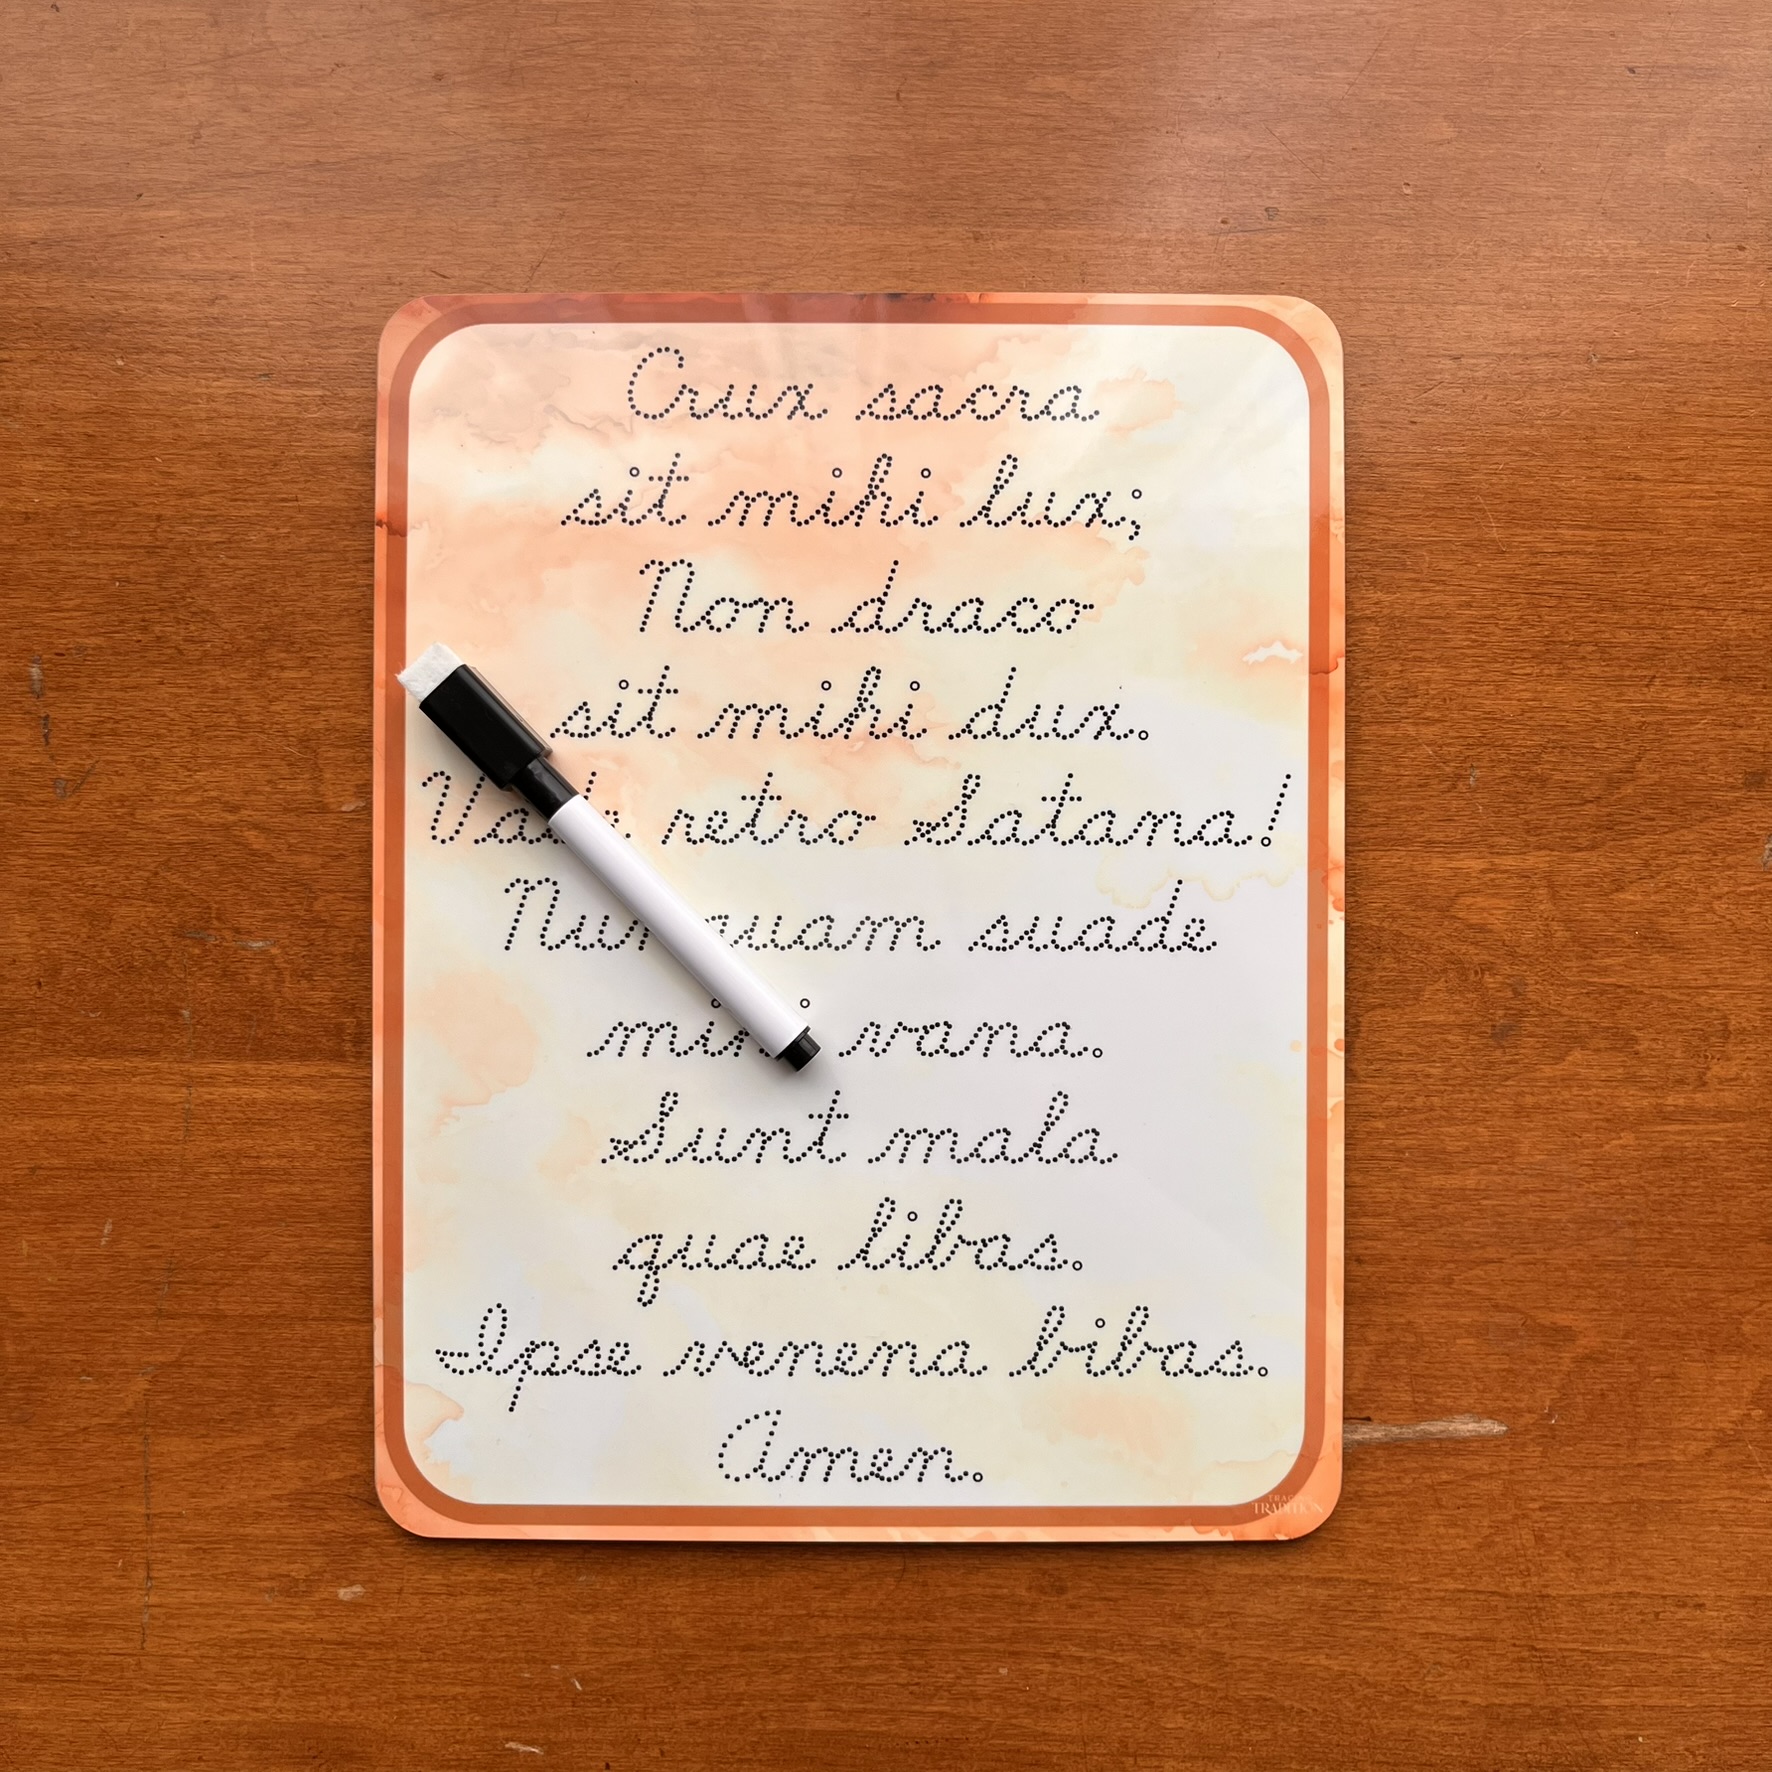 Crux sacra
sit mihi lux;
Non draco
sit mihi dux.
Vade retro Satana!
Nunquam suade
mihi vana.
Sunt mala
quae libas.
Ipse venena bibas.
Amen.
TRADITION